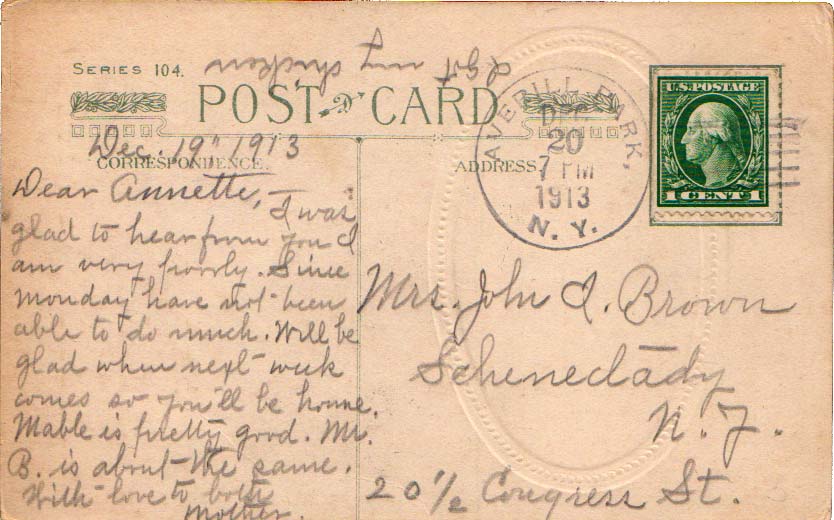 I got my chicken
SERIES 104.
POST CARD
Dec. 19" 1913
CORRESPONDENCE.
ADDRESS
AVERILL PARK,
DEC
20
7 PM
1913
N. Y.
U.S. POSTAGE
1 CENT 1
Dear Annette, - I was
glad to hear from you I
am very poorly. Since
monday have not been
able to do much. Will be
glad when next week
comes so you'll be home.
Mable is pretty good. Mr.
B. is about the same.
With love to both
Mother.
Mrs. John I. Brown
Schenectady
N. Y.
20 1/2 Congress St.